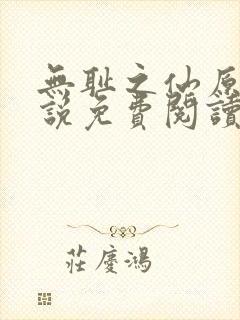 無耻之仙原
說免費閱讀
莊慶鴻